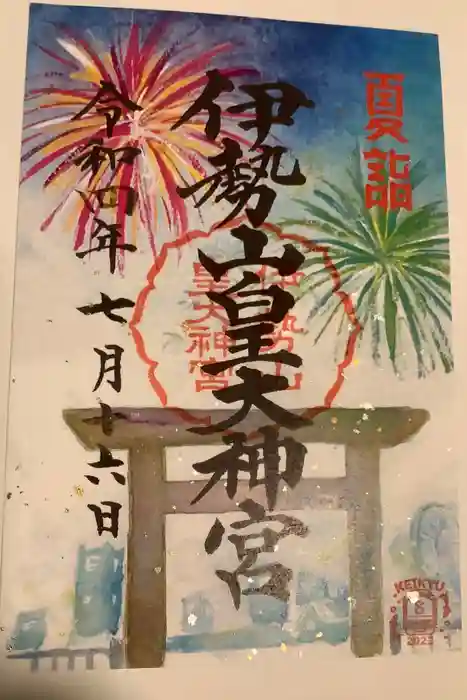 夏詣
伊勢山皇大神宮
伊勢山
皇大神宮
令和四年
七月十六日
KEIKYU
8